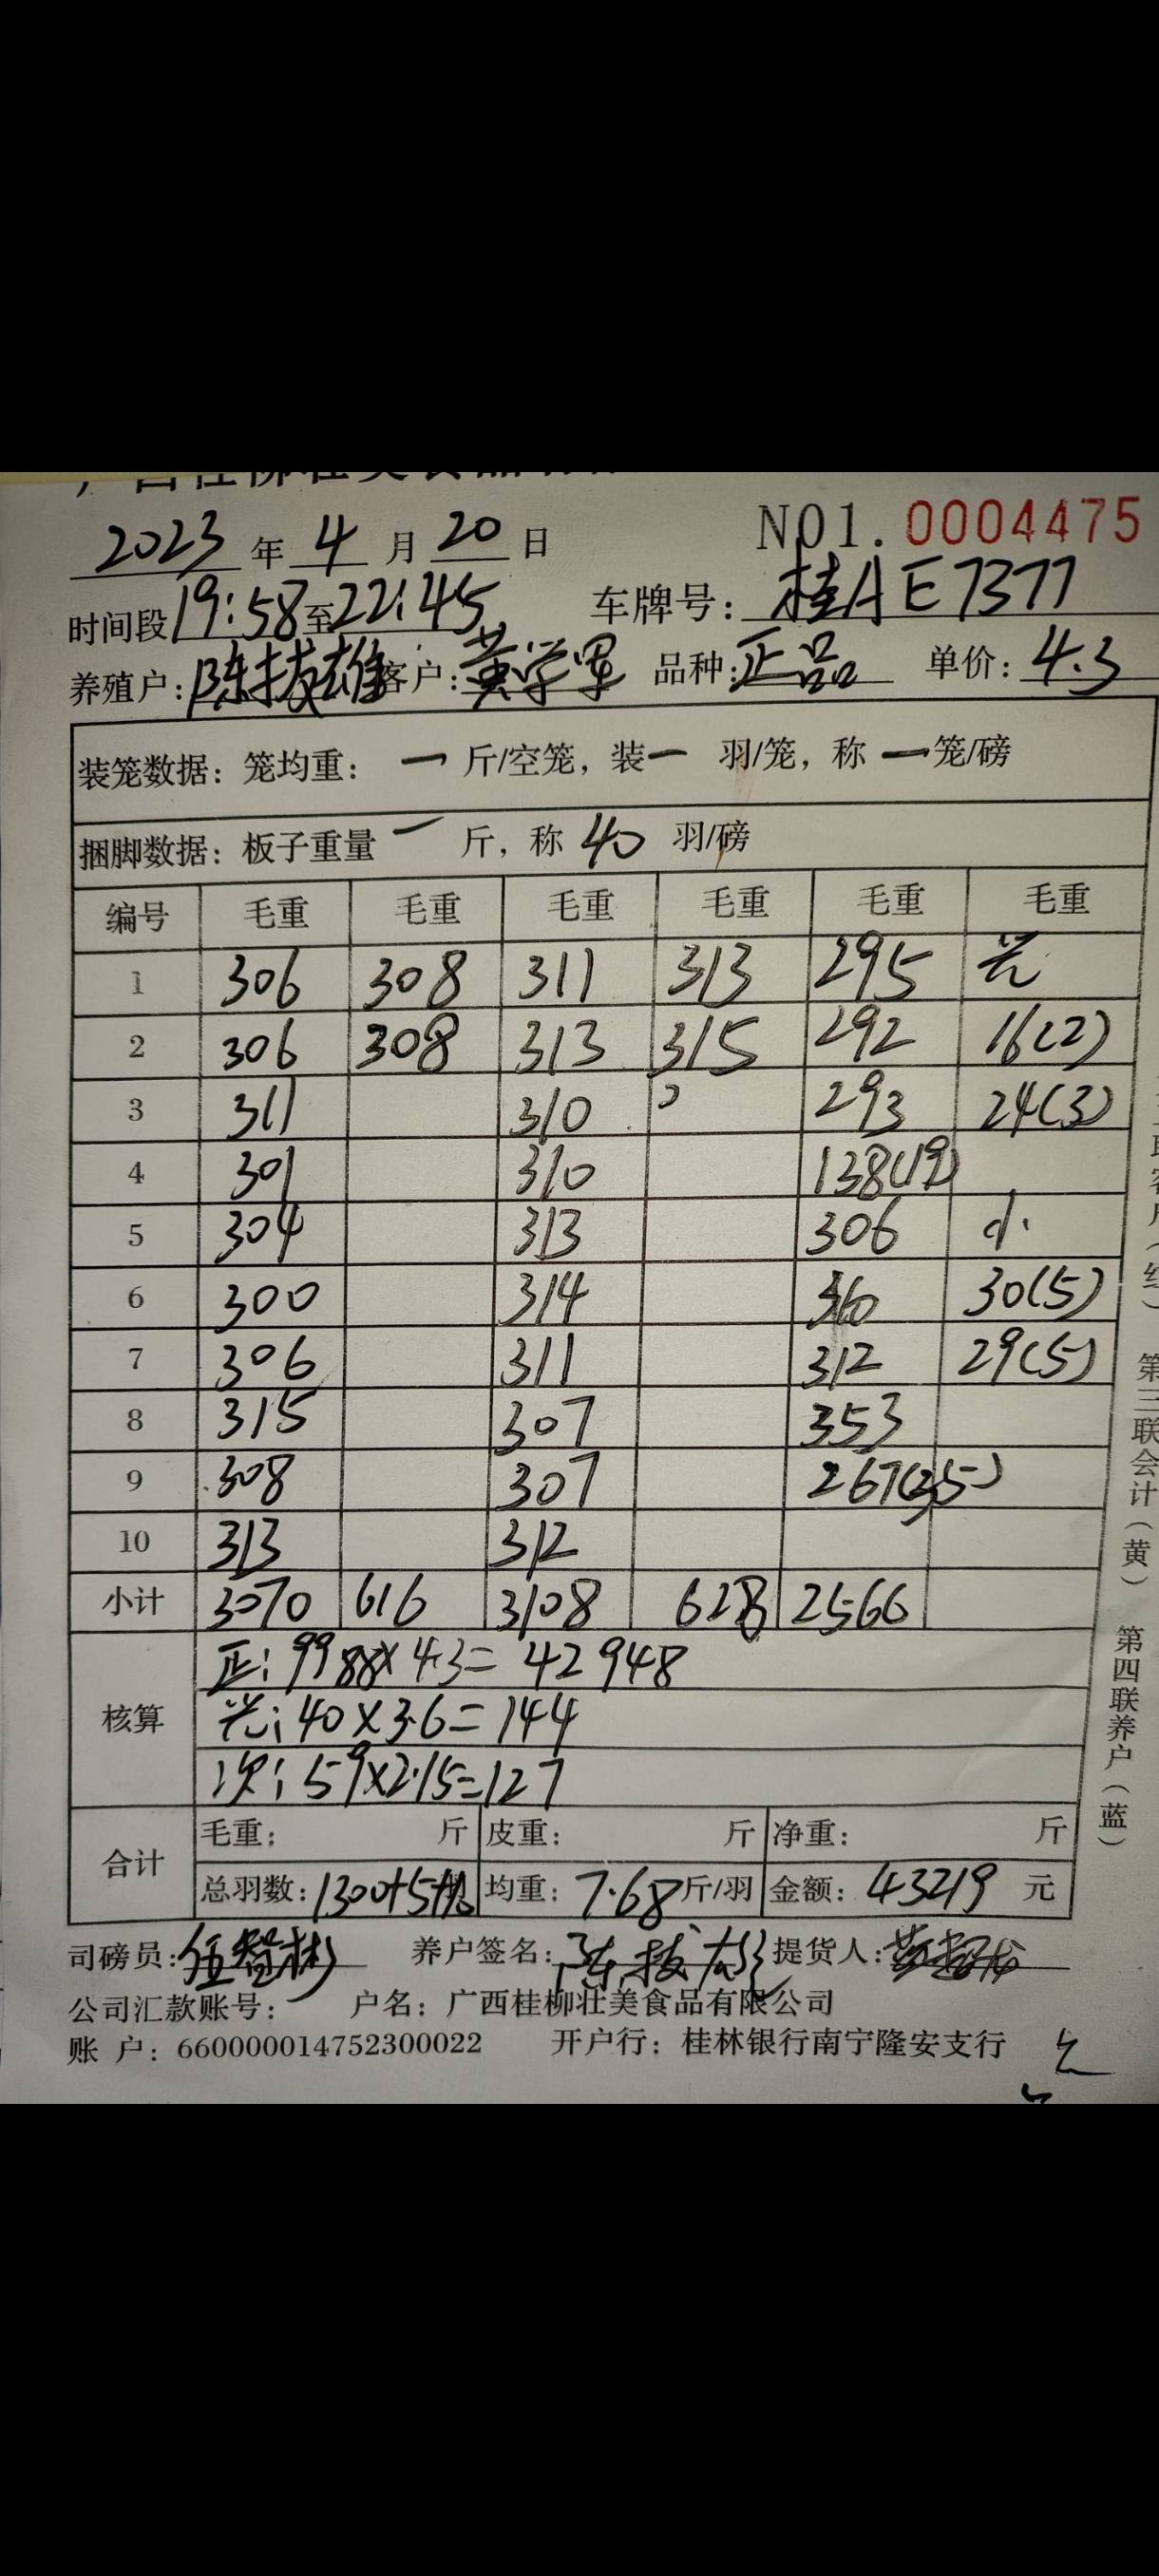 2023 年 4 月 20 日 NO1. 0004475
时间段 19:58 至 22:45 车牌号: 桂A E7377
养殖户: 陈拔雄 客户: 黄学军 品种: 正品 单价: 4.3
装笼数据: 笼均重: 一 斤/空笼, 装 一 羽/笼, 称 一 笼/磅
捆脚数据: 板子重量 一 斤, 称 40 羽/磅
编号 毛重 毛重 毛重 毛重 毛重 毛重
1 306 308 311 313 295 光
2 306 308 313 315 292 16(2)
3 311 310 293 24(3)
4 301 310 138(19)
5 304 313 306
6 300 314 310 30(5)
7 306 311 312 29(5)
8 315 307 353
9 308 307 267(35)
10 313 312
小计 3070 616 3108 628 2566
核算 正: 9988×4.3= 42948
光: 40×3.6=144
次: 59×2.15=127
合计 毛重: 斤 皮重: 斤 净重: 斤
总羽数: 1300+5+10 均重: 7.68 斤/羽 金额: 43219 元
司磅员: 伍智彬 养户签名: 陈拔雄 提货人:
公司汇款账号: 户名: 广西桂柳壮美食品有限公司
账 户: 660000014752300022 开户行: 桂林银行南宁隆安支行
第三联会计(黄) 第四联养户(蓝)